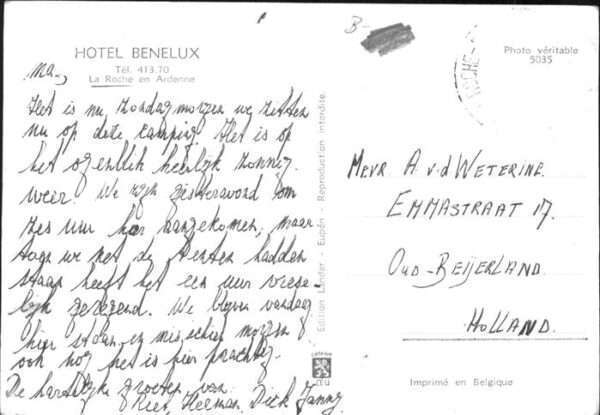 HOTEL BENELUX
Tél. 413.70
La Roche en Ardenne
Ma.,
Het is nu zondagmorgen we zitten
nu op deze camping. Het is op
het ogenblik heerlijk zonnig
weer. We zijn gisteravond om
zes uur hier aangekomen, maar
toen we net de tenten hadden
staan heeft het een uur vrese-
lijk geregend. We blijven vandaag
hier staan en misschien morgen
ook nog het is hier prachtig.
De hartelijke groeten van
Riet, Herman, Dick Janny
B-
Photo véritable
5035
ROCHE
Mevr. A v.d Wetering.
Emmastraat 17.
Oud-Beijerland.
Holland.
Edition Lander - Eupen - Reproduction interdite.
Imprimé en Belgique